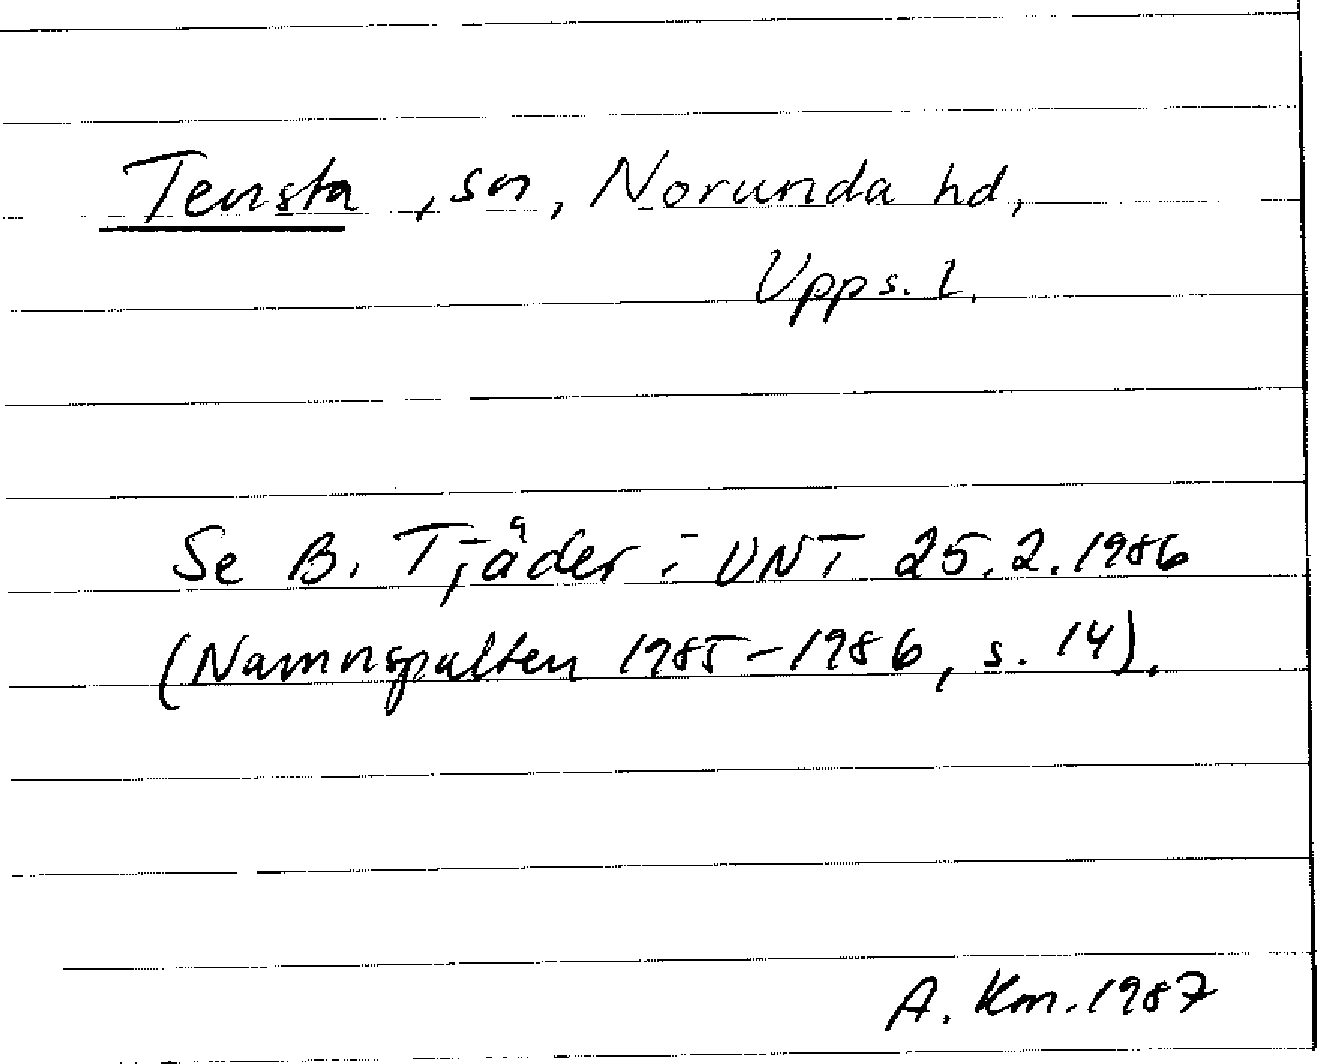 Tensta, sn, Norunda hd,
Upps. l.
Se B. Tjäder i UNT 25.2.1986
(Namnspalten 1985-1986, s. 14).
A. Km. 1987